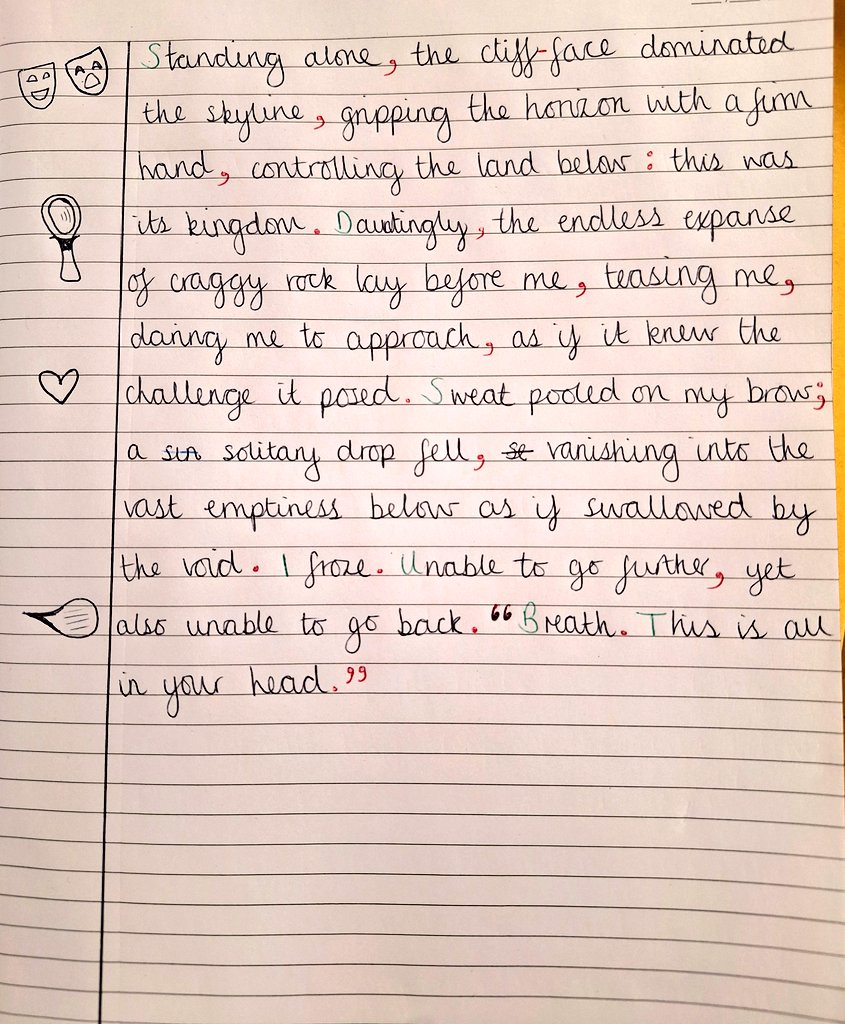 Standing alone, the cliff-face dominated
the skyline, gripping the horizon with a firm
hand, controlling the land below: this was
its kingdom. Dauntingly, the endless expanse
of craggy rock lay before me, teasing me,
daring me to approach, as if it knew the
challenge it posed. Sweat pooled on my brow;
a solitary drop fell, vanishing into the
vast emptiness below as if swallowed by
the void. I froze. Unable to go further, yet
also unable to go back. “Breath. This is all
in your head.”